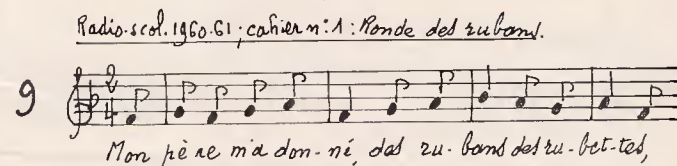 Radio-scol. 1960-61; cahier n: 1: Ronde des rubans.
9
2
4
Mon pè re m'a don-né, des ru-bans des ru-bet-tes,